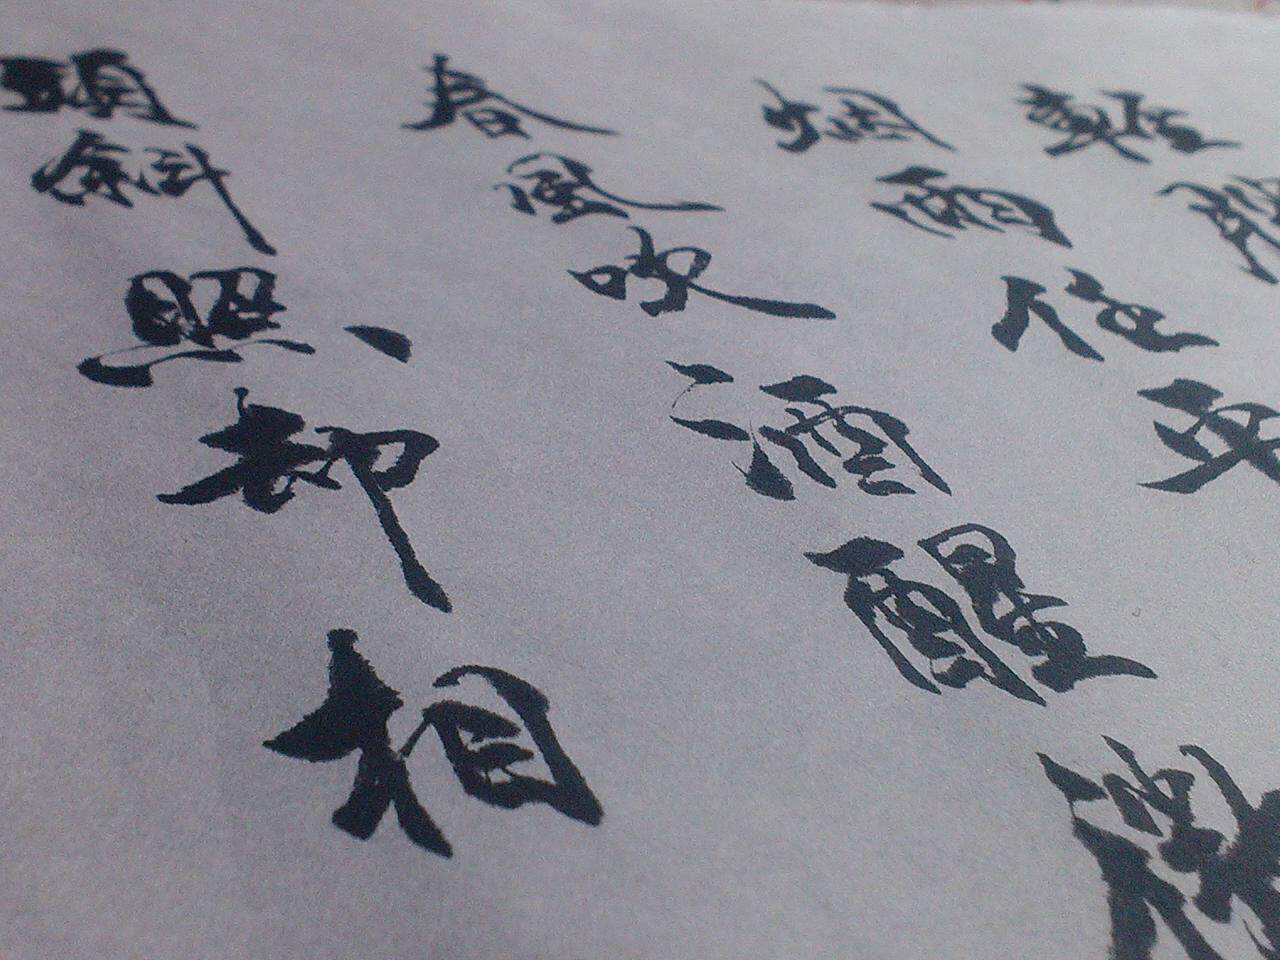 烟雨任平
春風吹酒醒微
頭斜照却相